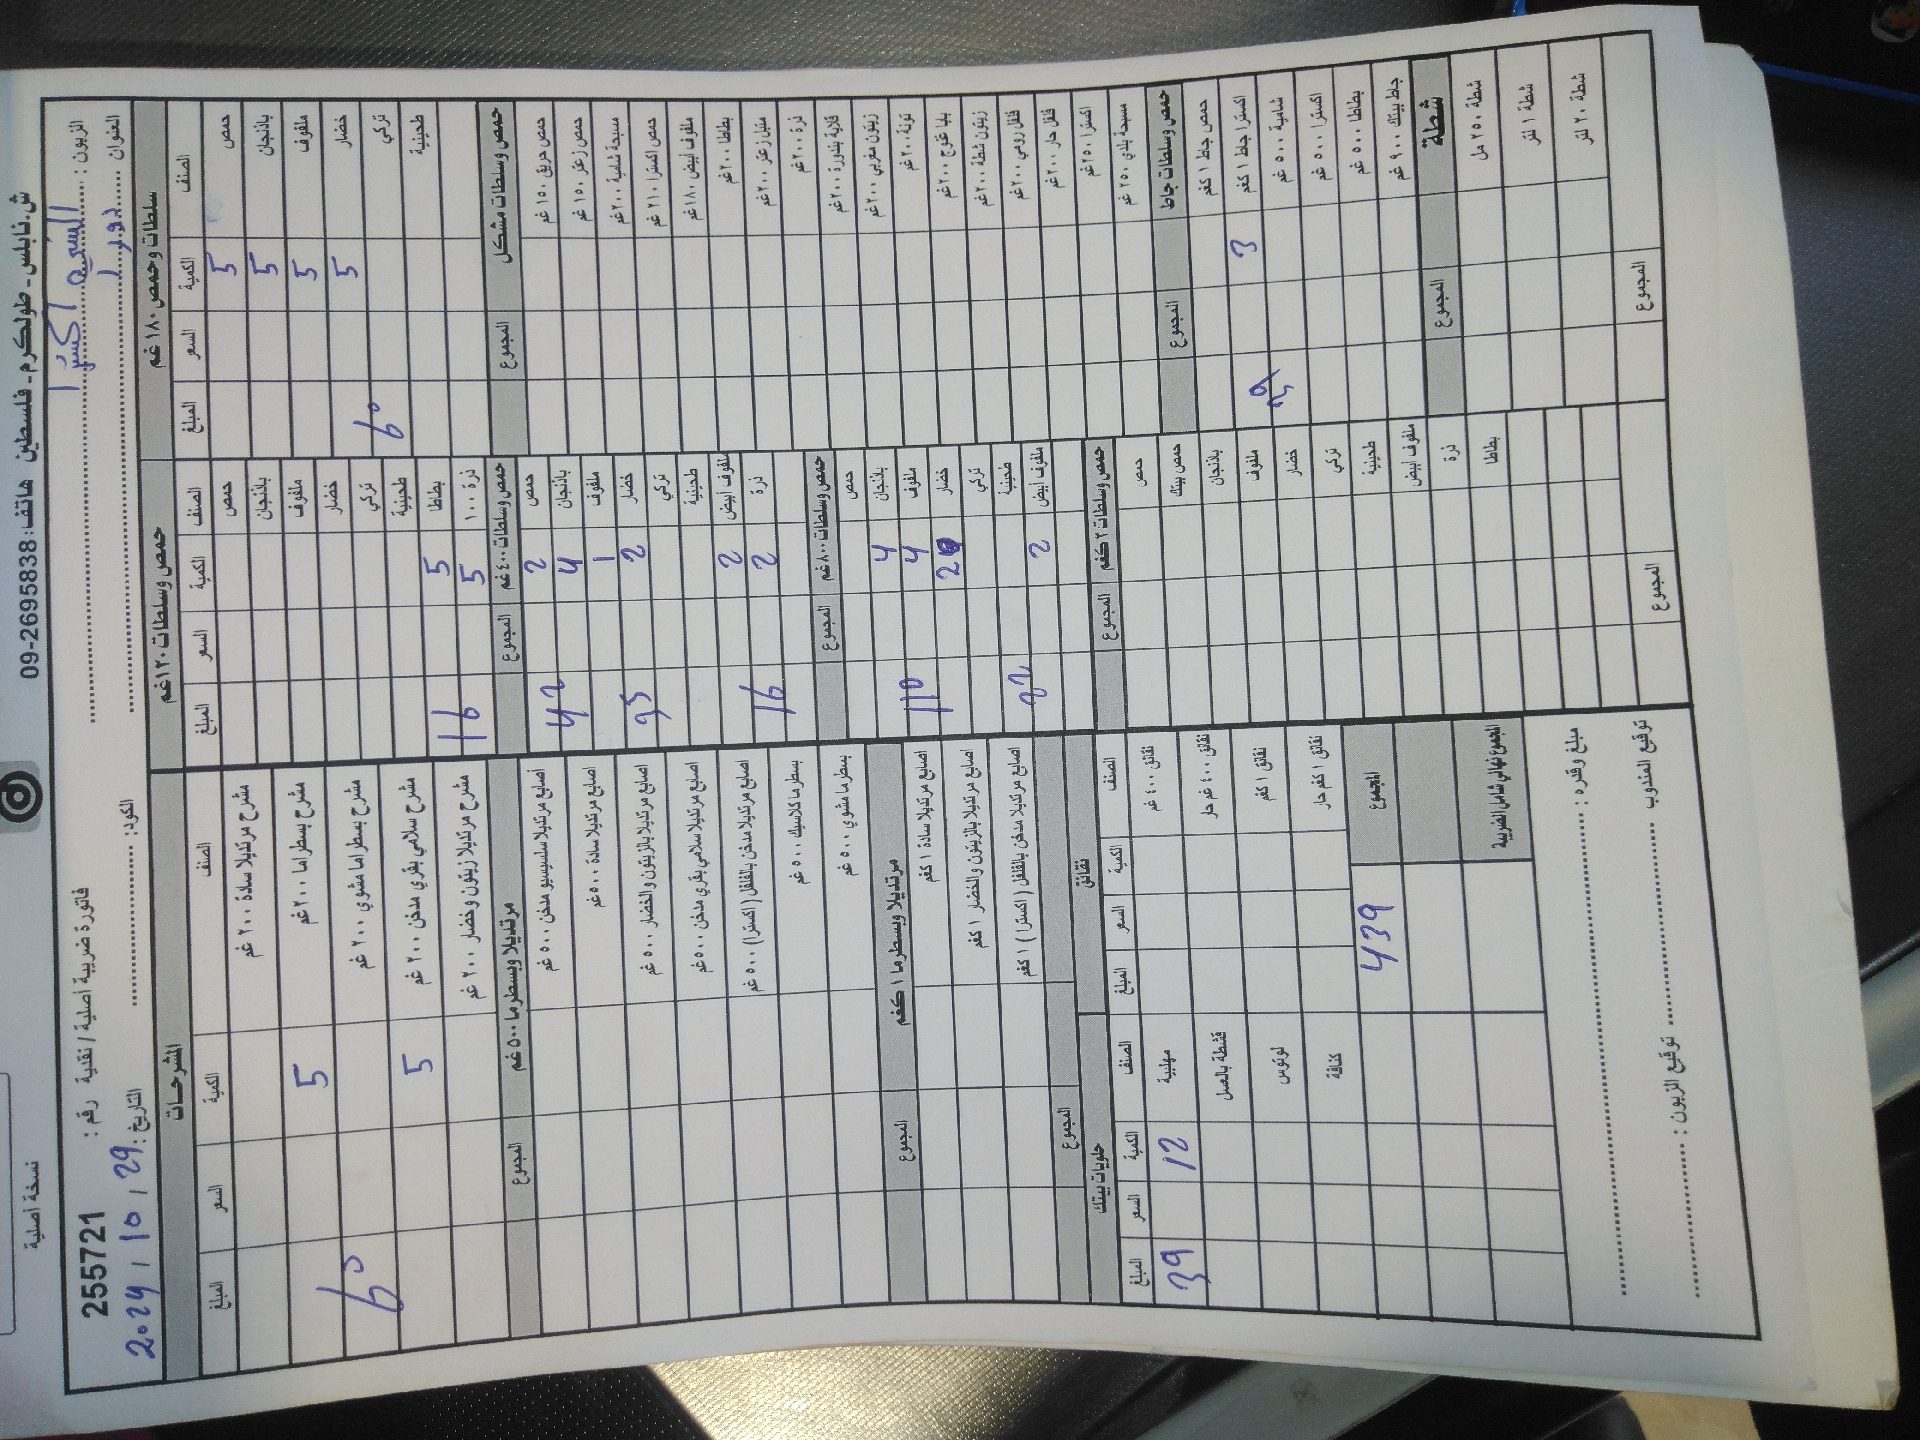 نسخة أصلية
ش. نابلس - طولكرم - فلسطين هاتف: 09-2695838
2555721 فاتورة ضريبية أصلية / نقدية رقم :
الزبون :
التاريخ : 29 / 10 / 2024 الكود: العنوان
سلطات وحمص ١٨٠ غم
الصنف الكمية السعر المبلغ
حمص 5
باذنجان 5
ملفوف 5
خضار 5
تركي 60
طحينية
حمص وسلطات مشكل المجموع
حمص حريق ١٥٠ غم
حمص زعتر ١٥٠ غم
مسبحة شامية ٢٠٠ غم
حمص اكسترا ٢١٠ غم
ملفوف أبيض ١٨٠ غم
بطاطا ٢٠٠ غم
متبل زعتر ٢٠٠ غم
ذرة ٢٠٠ غم
قلاية بندورة ٢٠٠ غم
زيتون مغربي ٢٠٠ غم
تونة ٢٠٠ غم
بابا غنوج ٢٠٠ غم
زيتون شطة ٢٠٠ غم
فلفل رومي ٢٠٠ غم
فلفل حار ٢٠٠ غم
اكسترا ٢٥٠ غم
مسبحة بلدي ٢٥٠ غم
حمص وسلطات جاط المجموع
حمص جاط ١ كغم
اكسترا جاط ١ كغم 3
شامية ٥٠٠ غم
اكسترا ٥٠٠ غم
بطاطا ٥٠٠ غم
جاط بيتك ٩٠٠ غم
شطة المجموع
شطة ٢٥٠ مل
شطة ١ لتر
شطة ٢٠ لتر
المجموع
حمص وسلطات ١٢٠ غم
الصنف الكمية السعر المبلغ
حمص
باذنجان
ملفوف
خضار
تركي
طحينية
بطاطا 5 16
ذرة ١٠٠ 5
حمص وسلطات ٤٠٠ غم المجموع
حمص 2
باذنجان 4 42
ملفوف 1
خضار 2 35
تركي
طحينية
ملفوف أبيض 2
ذرة 2 16
حمص وسلطات ٨٠٠ غم المجموع
حمص
باذنجان 4
ملفوف 4 110
خضار 2
تركي
طحينية
ملفوف أبيض 2 22
حمص وسلطات ٣ كغم المجموع
حمص
حمص بيتك
باذنجان
ملفوف
خضار
تركي
طحينية
ملفوف أبيض
ذرة
بطاطا
المجموع
المشرحات
الصنف الكمية السعر المبلغ
مشرح مرتديلا سادة ٢٠٠ غم
مشرح بسطراما ٢٠٠ غم 5
مشرح بسطراما مشوي ٢٠٠ غم 60
مشرح سلامي بقري مدخن ٢٠٠ غم 5
مشرح مرتديلا زيتون وخضار ٢٠٠ غم
مرتديلا وبسطرما ٥٠٠ غم المجموع
أصابع مرتديلا سلسيسيو مدخن ٥٠٠ غم
أصابع مرتديلا سادة ٥٠٠ غم
اصابع مرتديلا بالزيتون والخضار ٥٠٠ غم
اصابع مرتديلا سلامي بقري مدخن ٥٠٠ غم
اصابع مرتديلا مدخن بالفلفل (اكسترا) ٥٠٠ غم
بسطرما كلاسيك ٥٠٠ غم
بسطرما مشوي ٥٠٠ غم
مرتديلا وبسطرما ١ كغم المجموع
أصابع مرتديلا سادة ١ كغم
اصابع مرتديلا بالزيتون والخضار ١ كغم
اصابع مرتديلا مدخن بالفلفل (اكسترا) ١ كغم
المجموع
نقانق
الصنف الكمية السعر المبلغ
نقانق ٤٠٠ غم
نقانق ٤٠٠ غم حار
نقانق ١ كغم
نقانق ١ كغم حار
المجموع 439
المجموع نهائي شامل الضريبة
حلويات بيتك
الصنف الكمية السعر المبلغ
مهلبية 12 39
قشطة بالعسل
لوتوس
كنافة
مبلغ وقدره :
توقيع المندوب توقيع الزبون :